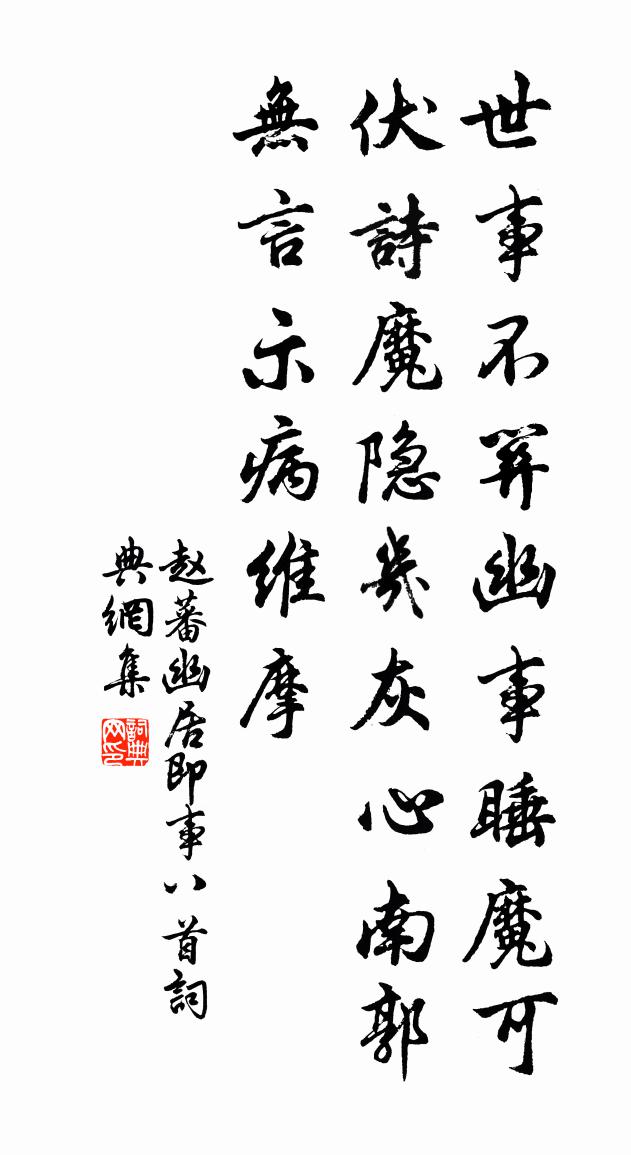 世事不关幽事睡魔可
伏詩魔隐几灰心南郭
無言示病維摩
赵蕃幽居即事八首詞
典網集
詞典
网印